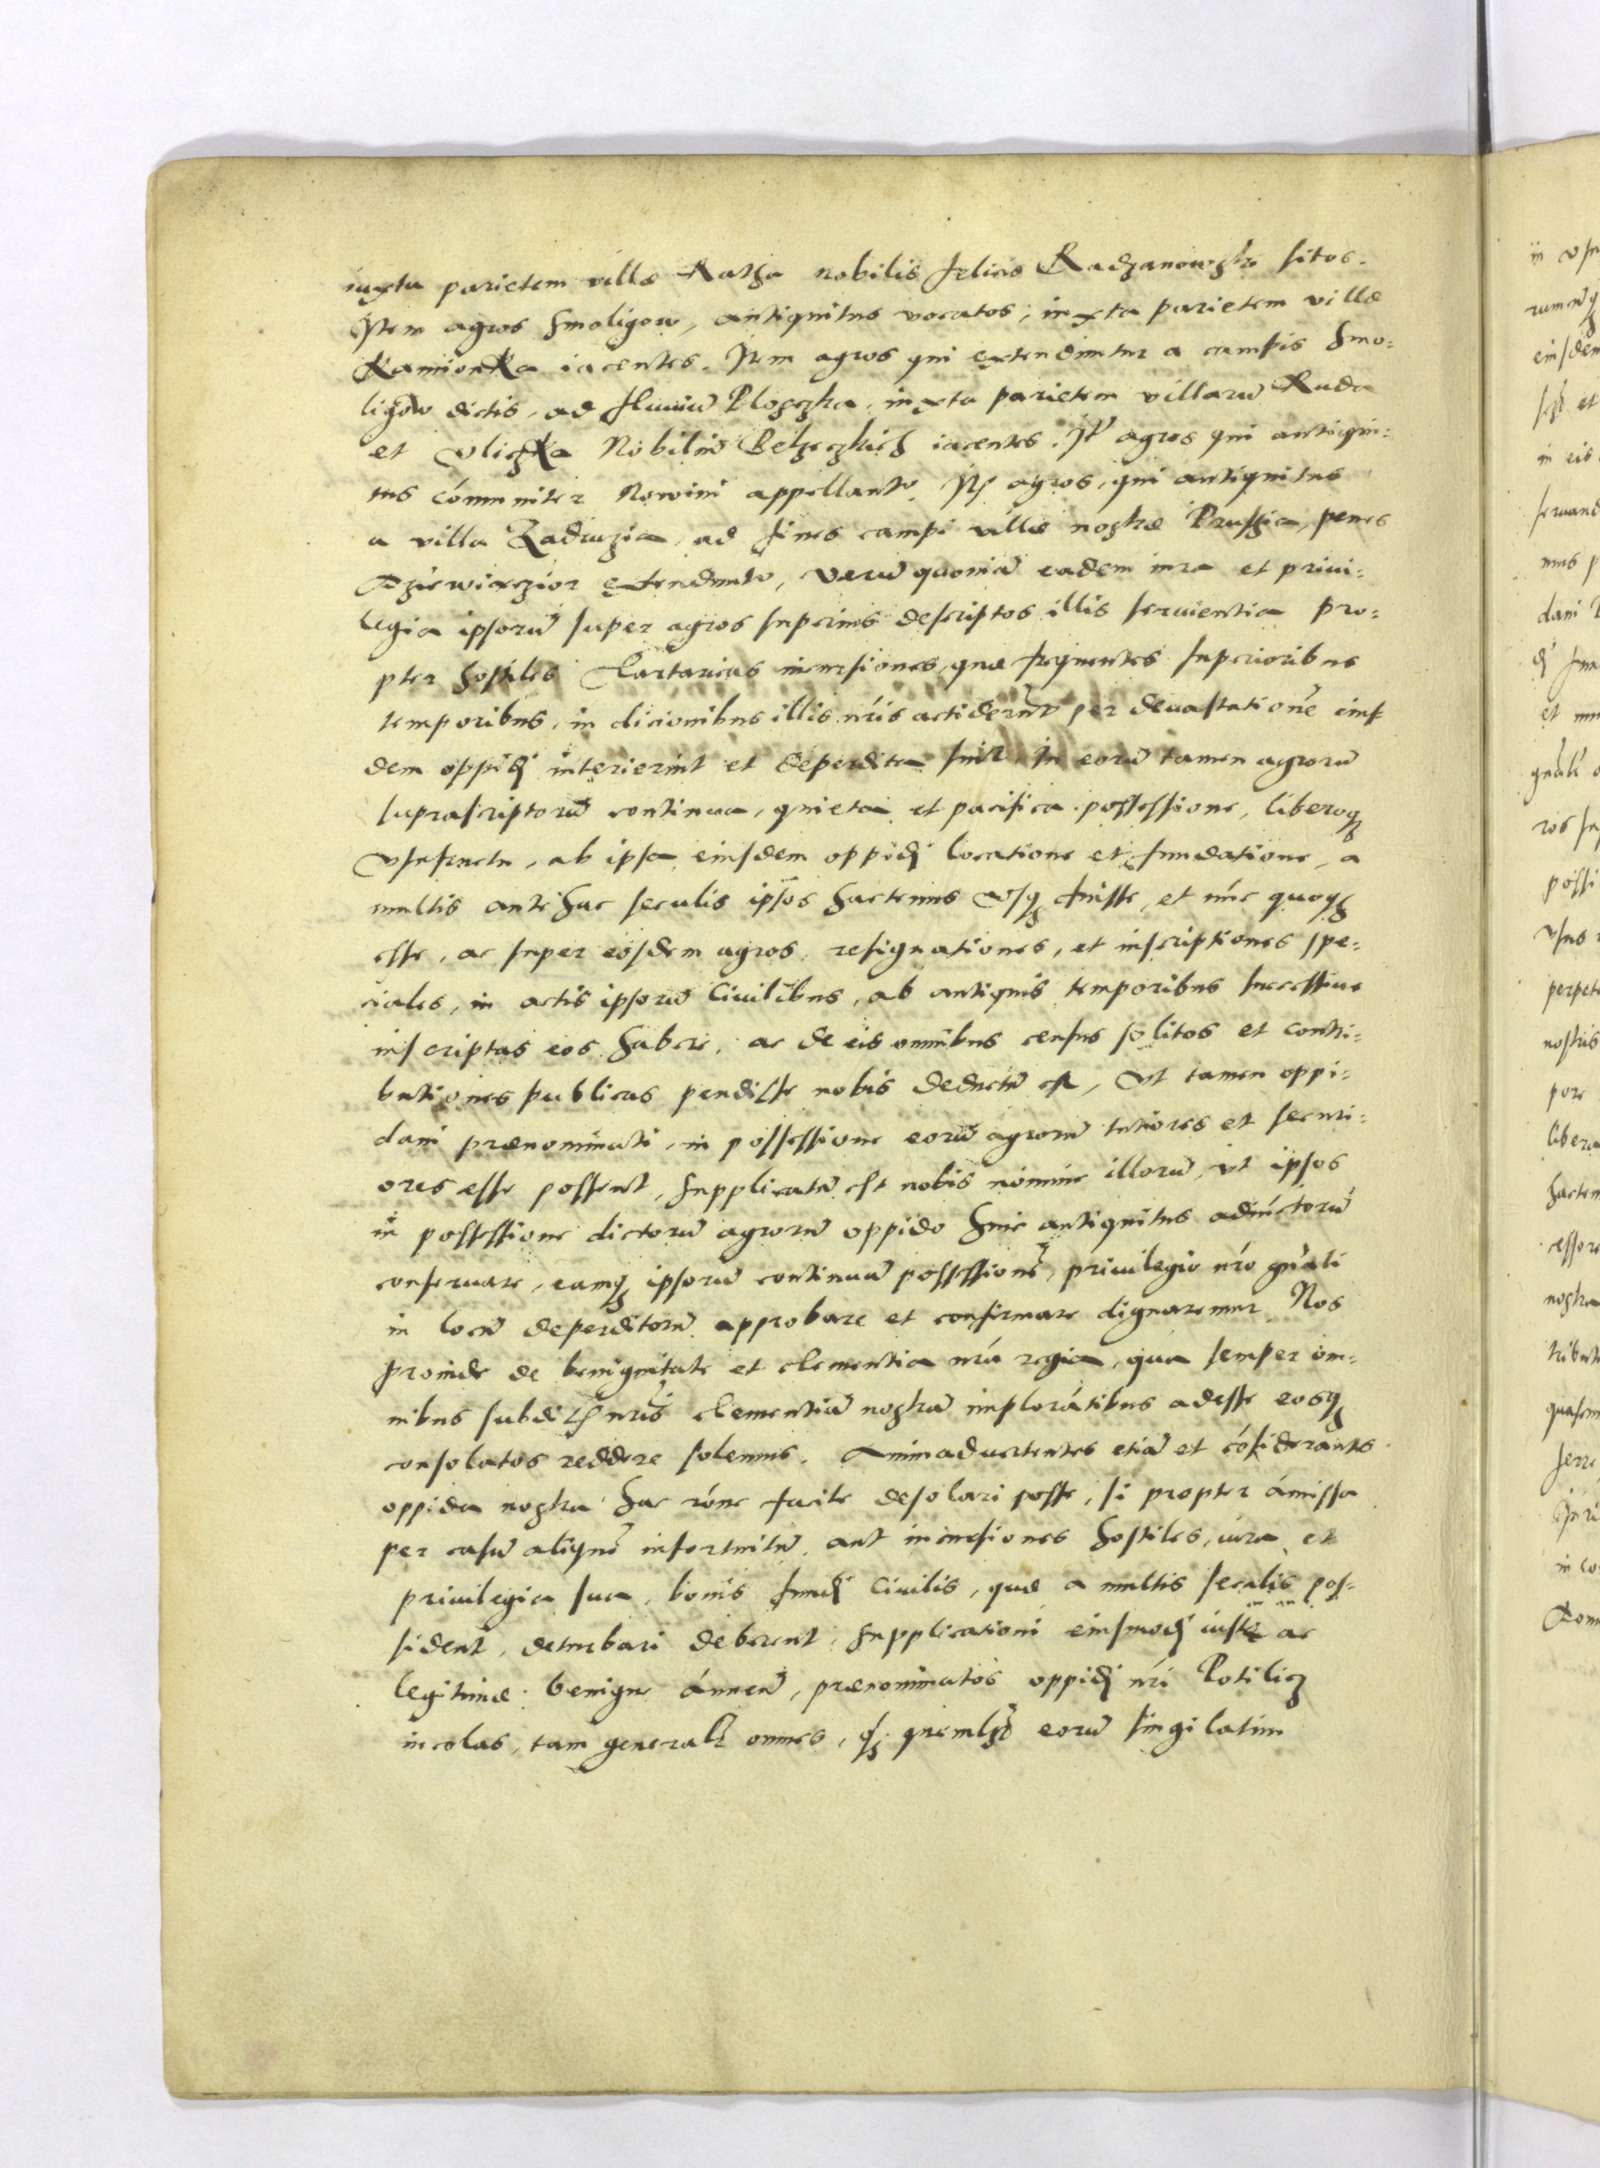 iuxta parietem villæ Ratha nobilis felicis Radzanowski sitos.
Item agros Smoligow, antiquitus vocatos, iuxta parietem villæ
Kamionka iacentes. Item agros qui extenduntur a campis Smo:
ligow dictis, ad fluuiū Ploszka, iuxta parietem villarū Ruda
et Uliczka Nobiliū Belzeczkich iacentes. Itē agros qui antiqui:
tus cōmuniter Nowini appellantr. Itē agros, qui antiquitus
a villa Zadwzia, ad fines campi villæ nostræ Prussia, penes
extenduntr, Verū quoniā eadem iura et priui:
legia ipsorū super agros superius descriptos illis seruientia pro:
pter hostiles Tartaricas incursiones, quæ frequentes superioribus
temporibus, in dicionibus illis nr̄is acciderūt per deuastationē eius
dem oppidi interierint et deperdita sint. In eorū tamen agrorū
suprascriptorū continua, quieta et pacifica possessione, liberoq3
usufructu, ab ipsa eiusdem oppidi locatione et fundatione, a
multis ante hac seculis ipsos hactenus usq3 fuisse, et nūc quoq3
esse, ac super eosdem agros, resignationes, et inscriptiones spe:
ciales, in actis ipsorū Ciuilibus, ab antiquis temporibus successiue
inscriptas eos habere, ac de eis omnibus census solitos et contri:
butiones publicas pendisse nobis deductū est, Ut tamen oppi:
dani prænominati, in possessione eorū agrorū tutiores et securi:
ores esse possent, supplicatū est nobis nomine illorū, ut ipsos
in possessione dictorū agrorū oppido huic antiquitus adiūctorū
conseruare, eamq3 ipsorū continuā possessionē, priuilegio nr̄o gnāli
in locū deperditorū approbare et confirmare dignaremur. Nos
proinde de benignitate et clementia nr̄a regia, qua semper om:
nibus subditis nr̄is clementiā nostrā implorātibus adesse eosq3
consolatos reddere solemus. Animaduertentes etiā et cōsiderantes
oppida nostra hac rōne facile desolari posse, si propter amissa
per casū aliquē infortuitū, aut incursiones hostiles, iura et
priuilegia sua, bonis fundi Ciuilis, quæ a multis seculis pos:
sident, deturbari deberent, supplicationi eiusmodi iustæ ac
legitimæ benigne ānnen̄, prænominatos oppidi nr̄i Potilicz
incolas, tam generalr̄ omnes, q̄3 quemlibet eorū singilatim